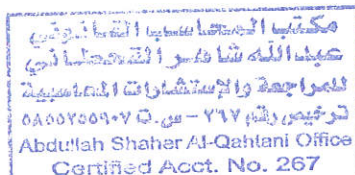 مكتب المحاسب القانوني
عبدالله شاهر القحطاني
للمراجعة والإستشارات المحاسبية
ترخيص رقم ٢٦٧ - س.ت ٥٨٥٥٢٥٥٩٠٧
Abdullah Shaher Al-Qahtani Office
Certified Acct. No. 267